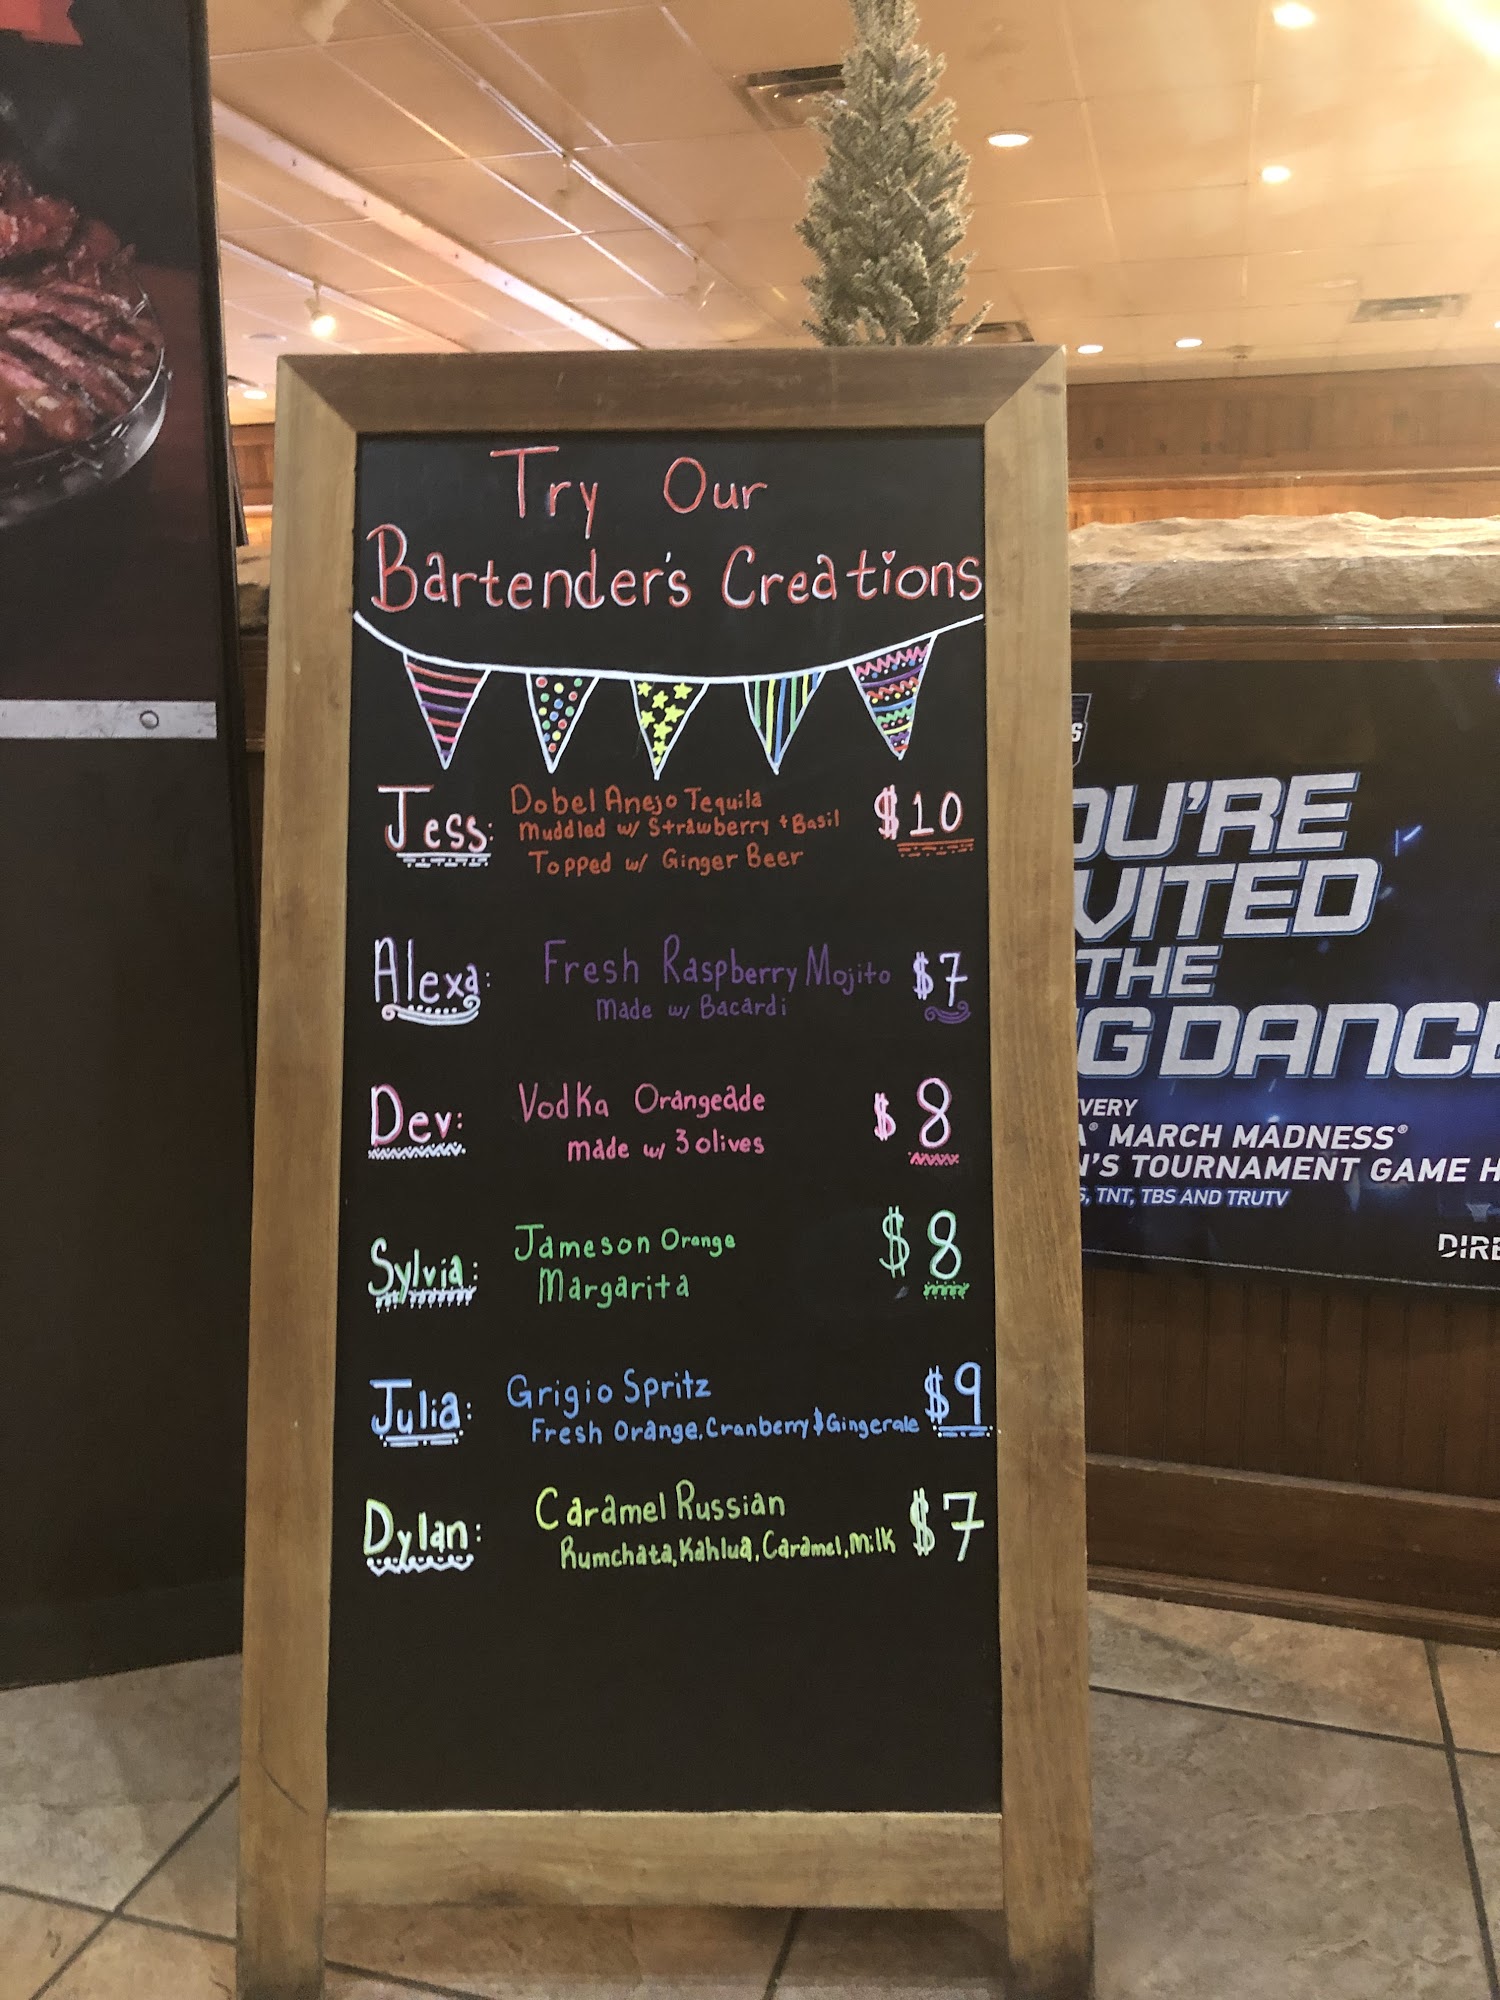 Try Our
Bartender's Creations
Jess: Dobel Anejo Tequila $10
Muddled w/ Strawberry + Basil
Topped w/ Ginger Beer
Alexa: Fresh Raspberry Mojito $7
Made w/ Bacardi
Dev: Vodka Orangeade $8
made w/ 3 olives
Sylvia: Jameson Orange $8
Margarita
Julia: Grigio Spritz $9
Fresh Orange, Cranberry & Gingerale
Dylan: Caramel Russian $7
Rumchata, Kahlua, Caramel, Milk
OU'RE
VITED
THE
G DANCE
VERY
MARCH MADNESS®
N'S TOURNAMENT GAME H
S, TNT, TBS AND TRUTV
DIRE